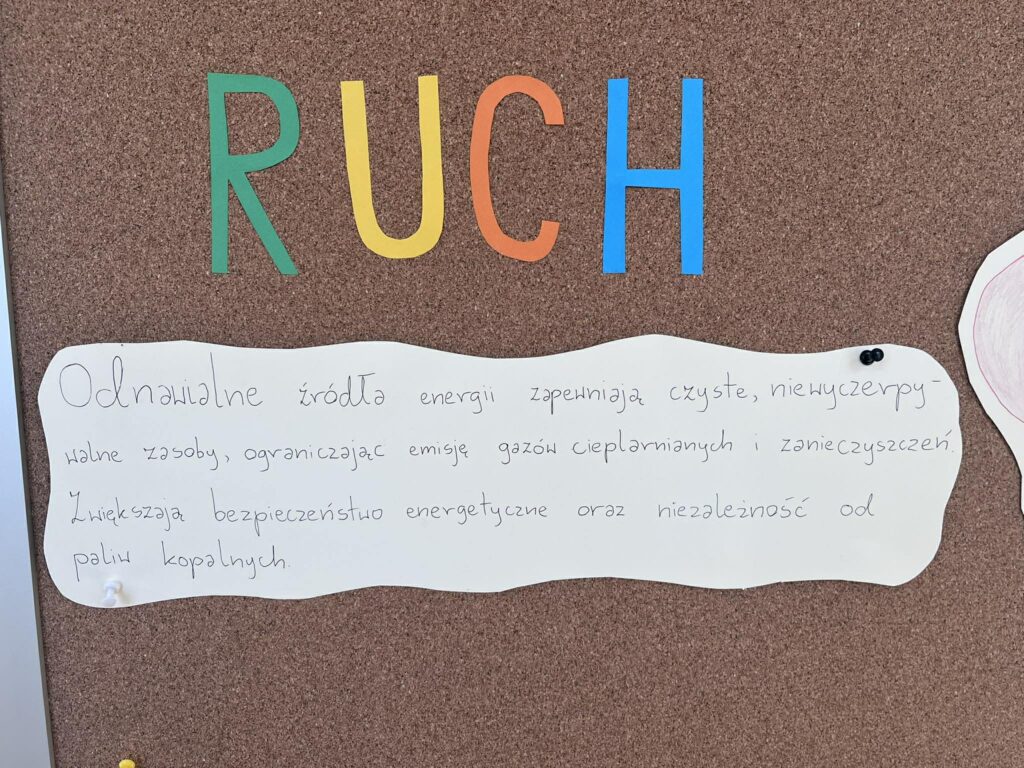 RUCH
Odnawialne źródła energii zapewniają czyste, niewyczerpy-
walne zasoby, ograniczając emisję gazów cieplarnianych i zanieczyszczeń.
Zwiększają bezpieczeństwo energetyczne oraz niezależność od
paliw kopalnych.